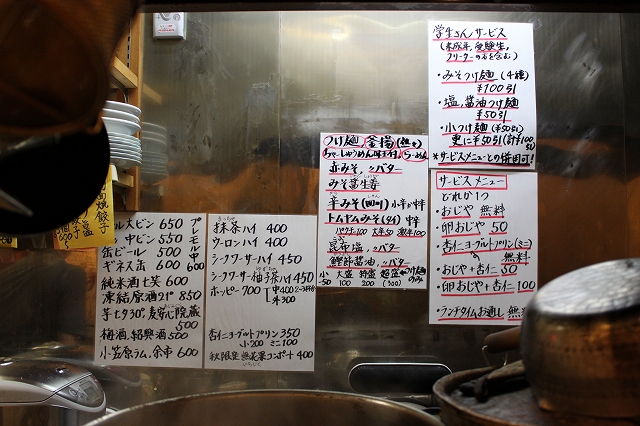 学生さんサービス
(未成年、受験生、
フリーターの方を含む)
・みそつけ麺(4種)
¥100引
・塩、醤油つけ麺
¥50引
・小つけ麺(¥50引)
更に¥50引(計¥100引)
*サービスメニューとの併用可!
サービスメニュー
どれか1つ
・おじや 無料
・卵おじや 50
・杏仁ヨーグルトプリン(ミニ)
無料
・おじや+杏仁 50
・卵おじや+杏仁 100
・ランチタイムお通し 無料
つけ麺、釜揚
ちゃーしゅうめん
らーめん
赤みそ、〃バター
みそ醤生姜
辛みそ(四川) 小辛 中辛
トムヤムみそ(タイ) 中辛
大辛50 激辛100
昆布塩、〃バター
鰹節醤油、〃バター
小 大盛 特盛 超盛
50 100 200 (300)
つけ麺のみ
抹茶ハイ 400
ウーロンハイ 400
シークワサーハイ 450
シークワサー柚子茶ハイ 450
ホッピー 700
中400
外300
杏仁ヨーグルトプリン 350
小・200 ミニ 100
秋限定 無花果コンポート 400
いちじく
ル大ビン 650
〃 中ビン 550
缶ビール 500
ギネス缶 600
プレモル中
600
純米酒 七笑 600
凍結原酒21° 850
芋七夕30° 麦安心院蔵
500 500
梅酒、紹興酒 500
小笠原ラム、余市 600
餃子